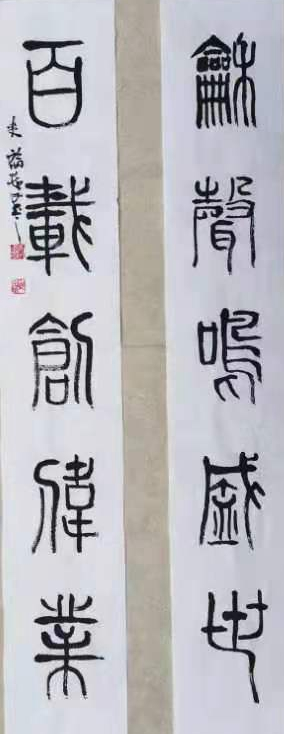 龢聲鳴盛世
百載創偉業